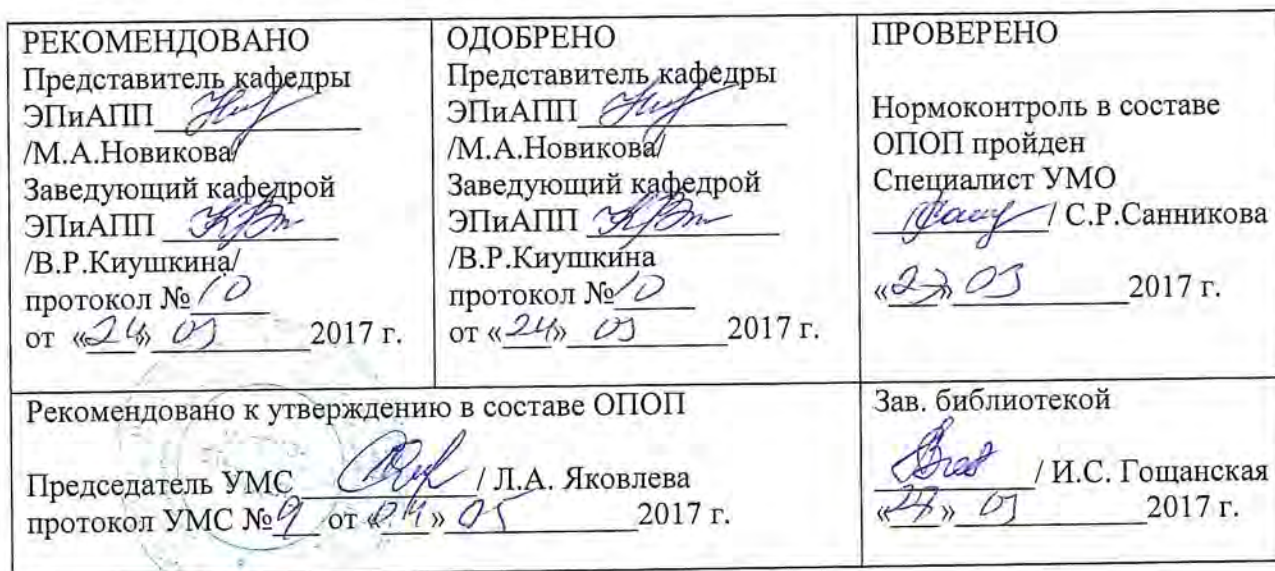 РЕКОМЕНДОВАНО
Представитель кафедры
ЭПиАПП
/М.А.Новикова/
Заведующий кафедрой
ЭПиАПП
/В.Р.Киушкина/
протокол № 10
от «24» 2017 г.
ОДОБРЕНО
Представитель кафедры
ЭПиАПП
/М.А.Новикова/
Заведующий кафедрой
ЭПиАПП
/В.Р.Киушкина
протокол № 10
от «24» 2017 г.
ПРОВЕРЕНО
Нормоконтроль в составе
ОПОП пройден
Специалист УМО
/ С.Р.Санникова
2017 г.
Рекомендовано к утверждению в составе ОПОП
Председатель УМС / Л.А. Яковлева
протокол УМС №9 от » 05 2017 г.
Зав. библиотекой
/ И.С. Гощанская
2017 г.